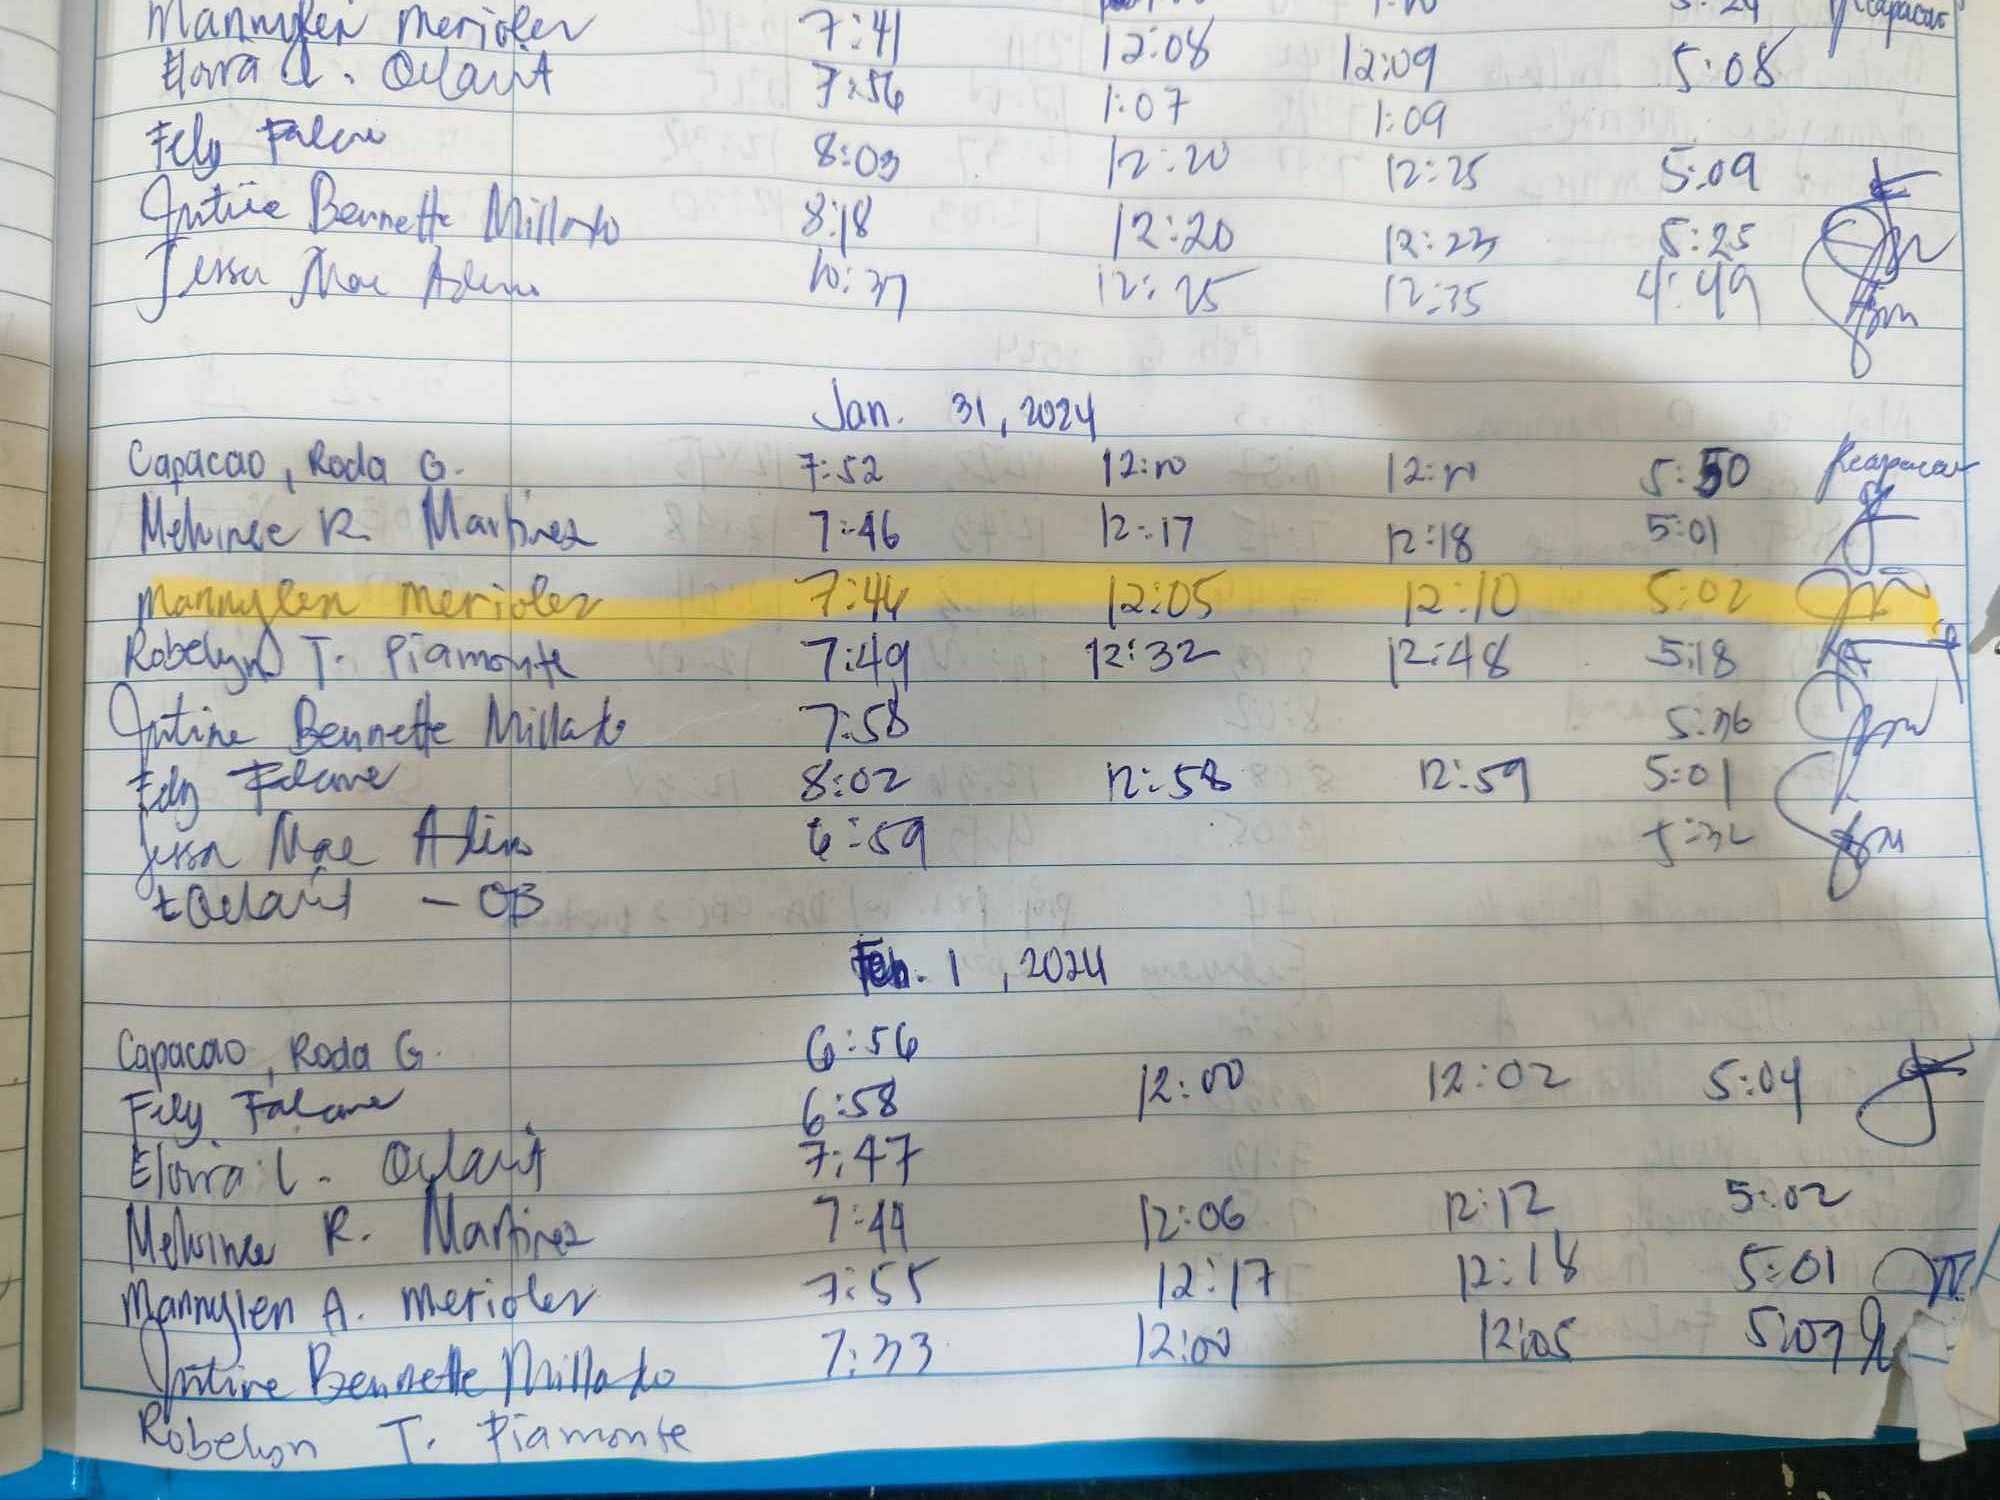 Mannylen Merioles 7:41 12:08 12:09 5:08
Elvira L. Orlanit 7:56 1:07 1:09
Fely Falcre 8:03 12:20 12:25 5:09
Justine Bennette Millado 8:18 12:20 12:23 5:25
Jessa Mae Adino 10:37 12:25 12:35 4:49
Jan. 31, 2024
Capacao, Roda G. 7:52 12:10 12:11 5:50 Rcapacao
Melvinee R. Martinez 7:46 12:17 12:18 5:01
Mannylen Merioles 7:44 12:05 12:10 5:02
Robelyn T. Piamonte 7:49 12:32 12:48 5:18
Justine Bennette Millado 7:58 5:36
Fely Falcre 8:02 12:58 12:59 5:01
Jessa Mae 6:59 5:32
- OB
Feb. 1, 2024
Capacao, Roda G. 6:56
Fely Falcre 6:58 12:00 12:02 5:04
Elvira L. Orlanit 7:47
Melvinee R. Martinez 7:44 12:06 12:12 5:02
Mannylen A. Merioles 7:55 12:17 12:18 5:01
Justine Bennette Millado 7:33 12:00 12:05 5:07
Robelyn T. Piamonte